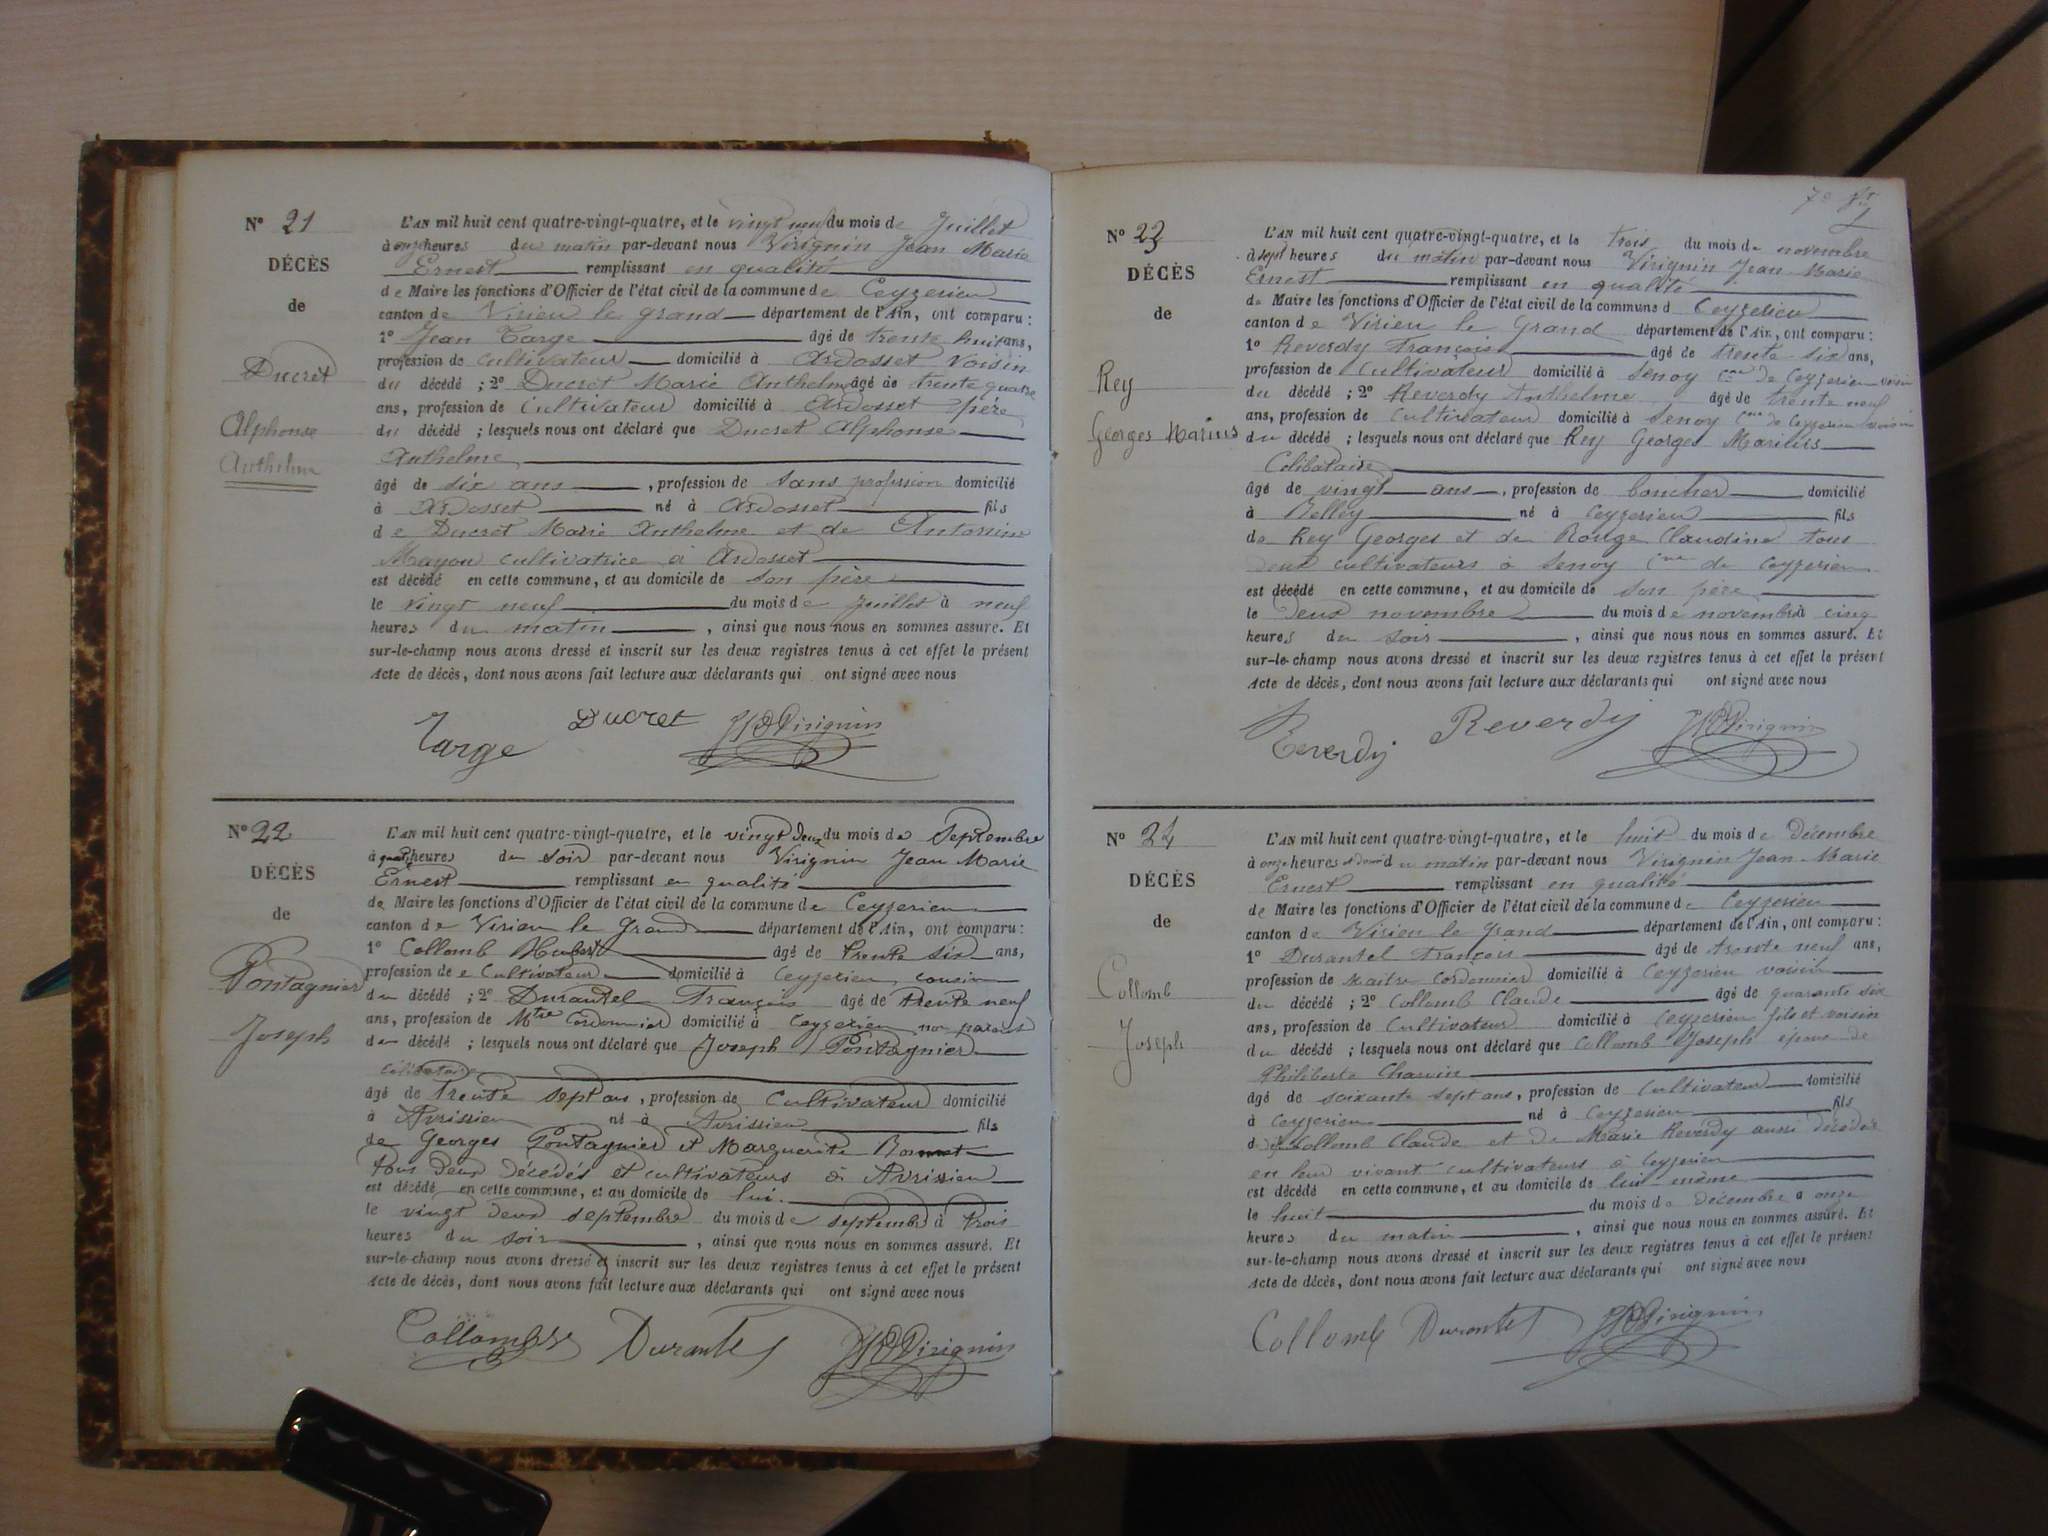 N° 21
DÉCÈS
de
Ducret
Alphonse
Anthelme
L'AN mil huit cent quatre-vingt-quatre, et le vingt neuf du mois de Juillet
à onze heures du matin par-devant nous Virignin Jean Marie
Ernest remplissant en qualité
de Maire les fonctions d'Officier de l'état civil de la commune de Ceyzerieu
canton de Virieu le grand département de l'Ain, ont comparu :
1° Jean Targe âgé de trente huit ans,
profession de cultivateur domicilié à Ardosset voisin
du décédé ; 2° Ducret Marie Anthelme âgé de trente quatre
ans, profession de cultivateur domicilié à Ardosset père
du décédé ; lesquels nous ont déclaré que Ducret Alphonse
Anthelme
âgé de six ans , profession de sans profession domicilié
à Ardosset né à Ardosset fils
de Ducret Marie Anthelme et de Antonine
Mayou cultivatrice à Ardosset
est décédé en cette commune, et au domicile de son père
le vingt neuf du mois de Juillet à neuf
heures du matin , ainsi que nous nous en sommes assuré. Et
sur-le-champ nous avons dressé et inscrit sur les deux registres tenus à cet effet le présent
Acte de décès, dont nous avons fait lecture aux déclarants qui ont signé avec nous
Targe Ducret Virignin
N° 22
DÉCÈS
de
Pontagnier
Joseph
L'AN mil huit cent quatre-vingt-quatre, et le vingt deux du mois de Septembre
à quatre heures du soir par-devant nous Virignin Jean Marie
Ernest remplissant en qualité
de Maire les fonctions d'Officier de l'état civil de la commune de Ceyzerieu
canton de Virieu le Grand département de l'Ain, ont comparu :
1° Collomb Hubert âgé de trente six ans,
profession de Cultivateur domicilié à Ceyzerieu cousin
du décédé ; 2° Durantel François âgé de trente neuf
ans, profession de Mtre Cordonnier domicilié à Ceyzerieu non parent
du décédé ; lesquels nous ont déclaré que Joseph Pontagnier
célibataire
âgé de trente sept ans , profession de Cultivateur domicilié
à Avrissieu né à Avrissieu fils
de Georges Pontagnier et Marguerite Bonnet
tous deux décédés et cultivateurs à Avrissieu
est décédé en cette commune, et au domicile de lui.
le vingt deux septembre du mois de septembre à trois
heures du soir , ainsi que nous nous en sommes assuré. Et
sur-le-champ nous avons dressé et inscrit sur les deux registres tenus à cet effet le présent
Acte de décès, dont nous avons fait lecture aux déclarants qui ont signé avec nous
Collomb Durantel Virignin
N° 23
DÉCÈS
de
Rey
Georges Marius
L'AN mil huit cent quatre-vingt-quatre, et le trois du mois de novembre
à sept heures du matin par-devant nous Virignin Jean Marie
Ernest remplissant en qualité
de Maire les fonctions d'Officier de l'état civil de la commune d Ceyzerieu
canton de Virieu le Grand département de l'Ain, ont comparu :
1° Reverdy François âgé de trente six ans,
profession de Cultivateur domicilié à Senoy cne de Ceyzerieu voisin
du décédé ; 2° Reverdy Anthelme âgé de trente neuf
ans, profession de Cultivateur domicilié à Senoy cne de Ceyzerieu voisin
du décédé ; lesquels nous ont déclaré que Rey Georges Marius
Célibataire
âgé de vingt ans , profession de boucher domicilié
à Belley né à Ceyzerieu fils
de Rey Georges et de Rouge Claudine tous
deux cultivateurs à Senoy Cne de Ceyzerieu
est décédé en cette commune, et au domicile de son père
le deux novembre du mois de novembre à cinq
heures du soir , ainsi que nous nous en sommes assuré. Et
sur-le-champ nous avons dressé et inscrit sur les deux registres tenus à cet effet le présent
Acte de décès, dont nous avons fait lecture aux déclarants qui ont signé avec nous
Reverdy Reverdy Virignin
N° 24
DÉCÈS
de
Collomb
Joseph
L'AN mil huit cent quatre-vingt-quatre, et le huit du mois de Décembre
à onze heures et demi du matin par-devant nous Virignin Jean Marie
Ernest remplissant en qualité
de Maire les fonctions d'Officier de l'état civil de la commune de Ceyzerieu
canton de Virieu le grand département de l'Ain, ont comparu :
1° Durantel François âgé de trente neuf ans,
profession de Maitre Cordonnier domicilié à Ceyzerieu voisin
du décédé ; 2° Collomb Claude âgé de quarante six
ans, profession de Cultivateur domicilié à Ceyzerieu fils et voisin
du décédé ; lesquels nous ont déclaré que Collomb Joseph époux de
Philiberte Charvin
âgé de soixante sept ans , profession de Cultivateur domicilié
à Ceyzerieu né à Ceyzerieu fils
de Collomb Claude et de Marie Reverdy aussi décédée
en leur vivant cultivateurs à Ceyzerieu
est décédé en cette commune, et au domicile de lui même
le huit du mois de décembre à onze
heures du matin , ainsi que nous nous en sommes assuré. Et
sur-le-champ nous avons dressé et inscrit sur les deux registres tenus à cet effet le présent
Acte de décès, dont nous avons fait lecture aux déclarants qui ont signé avec nous
Collomb Durantel Virignin